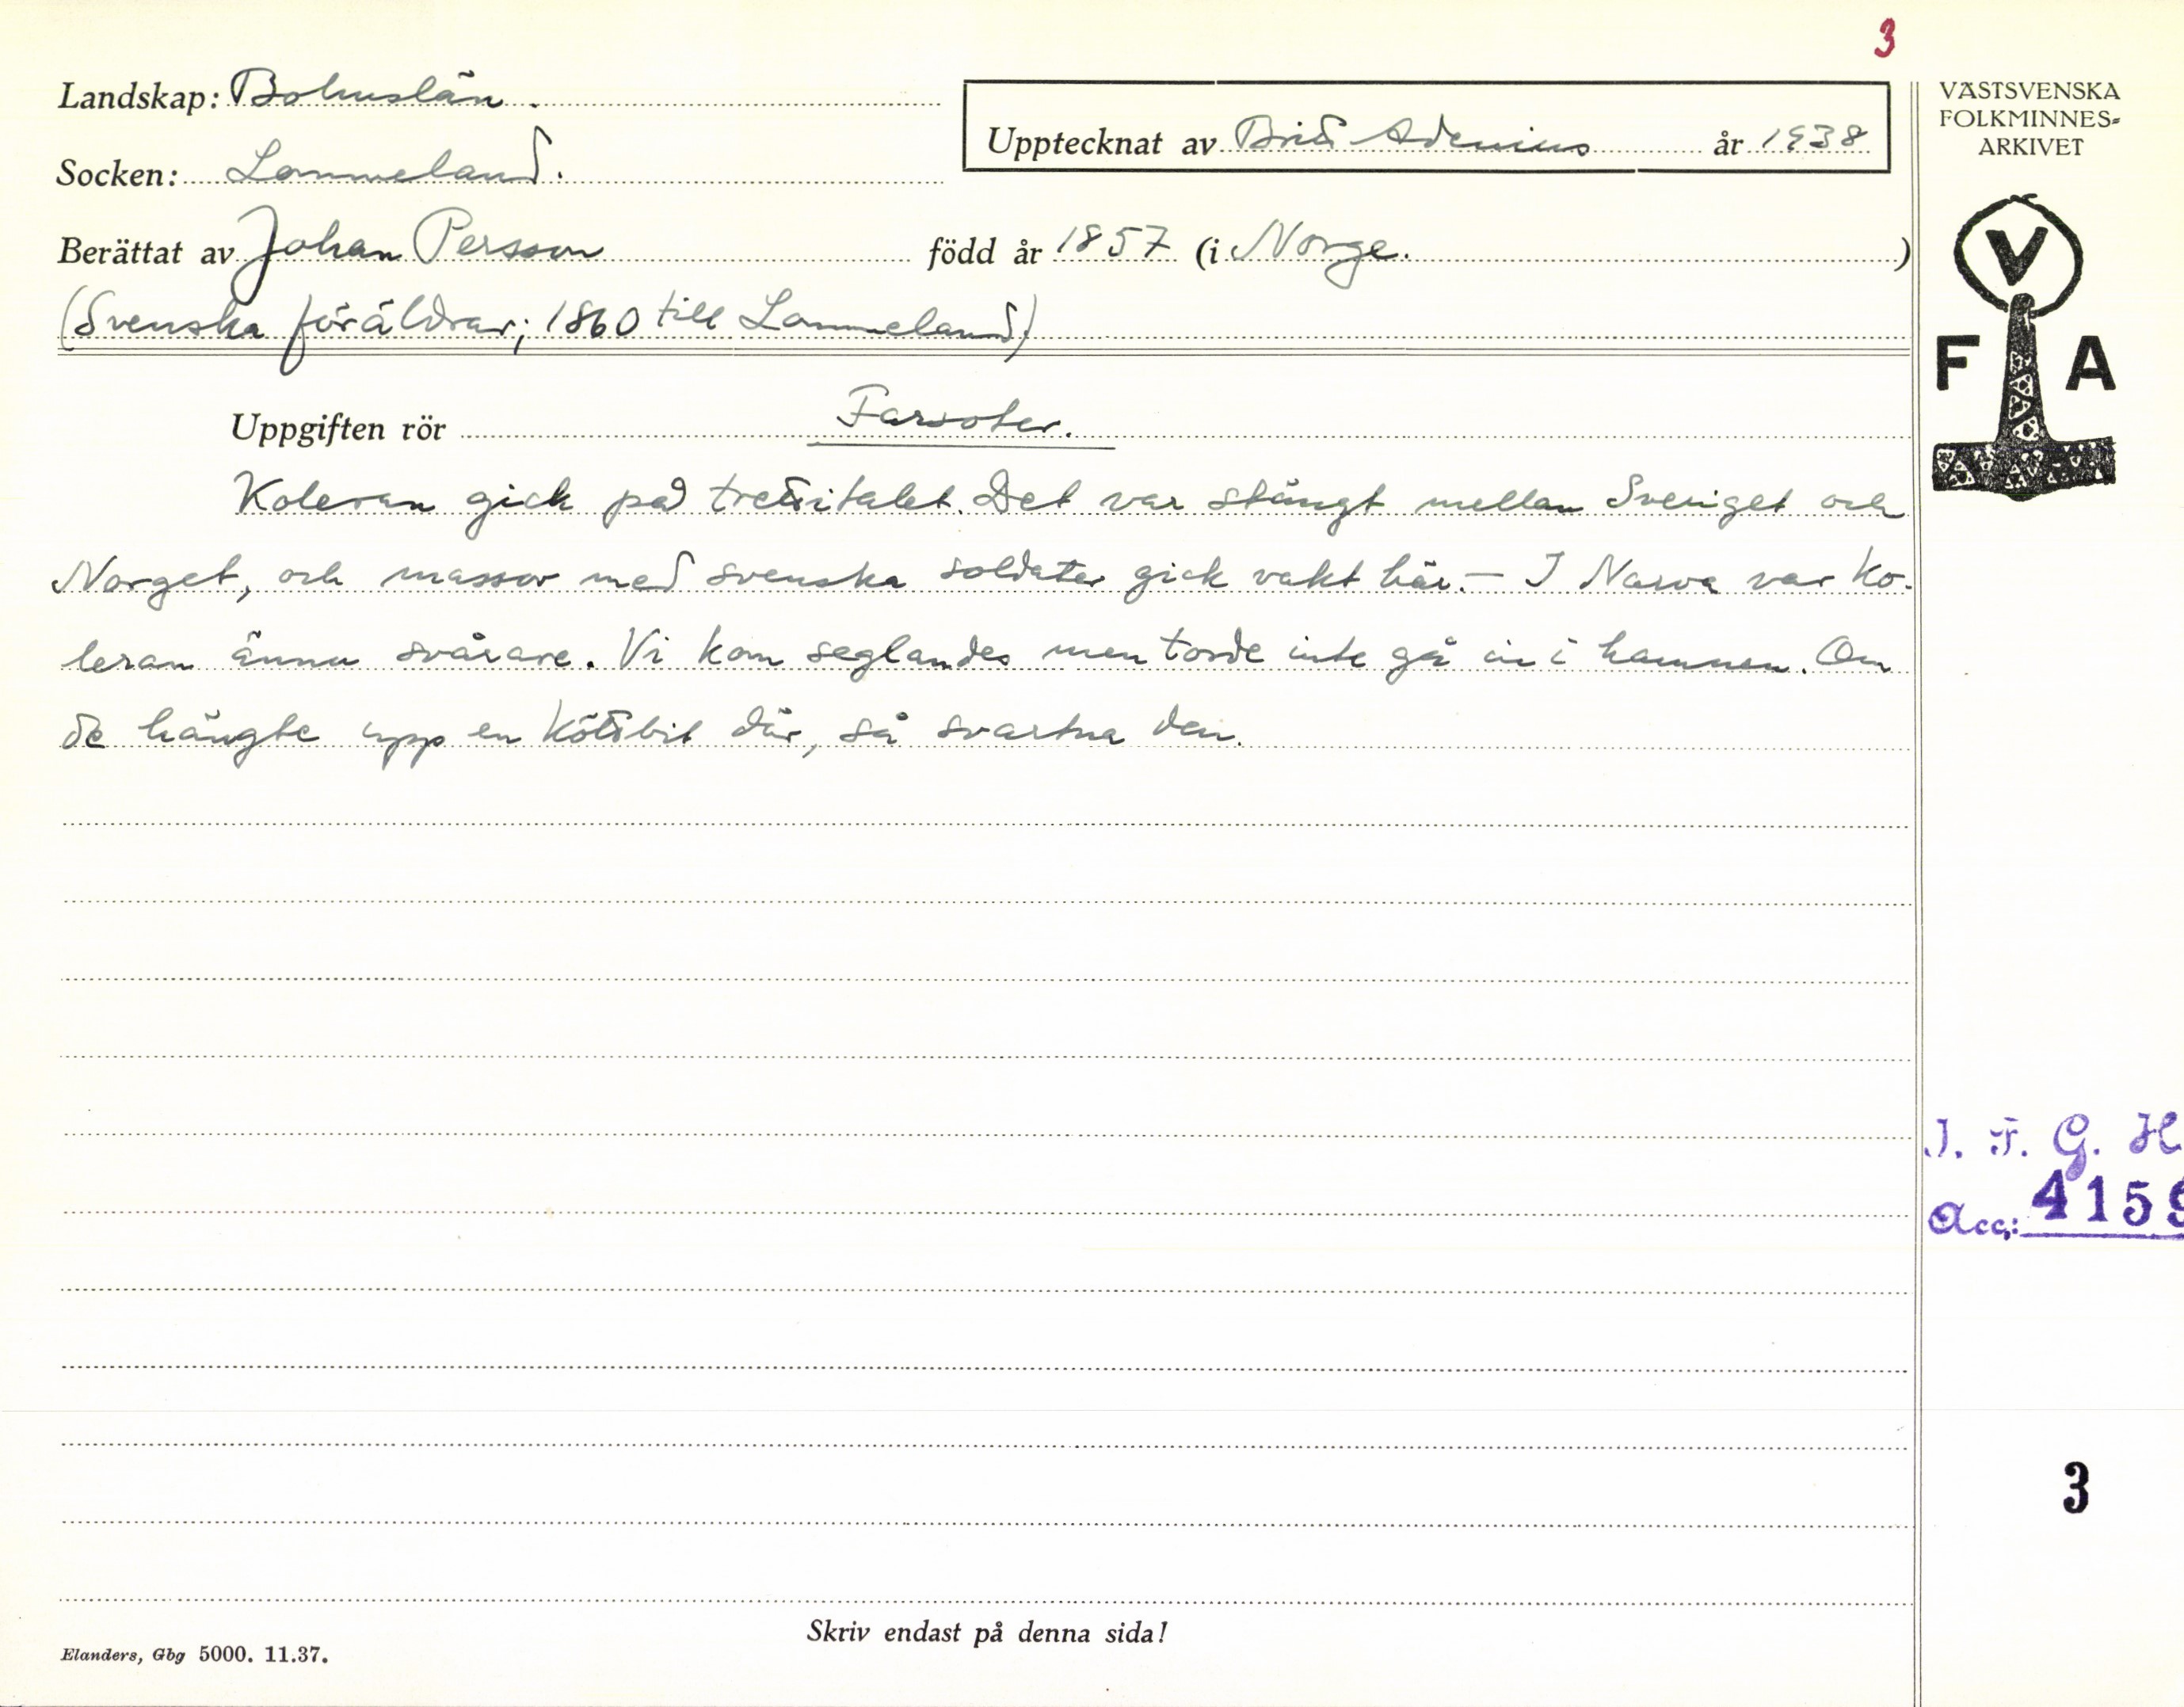 3
Landskap: Bohuslän.
Upptecknat av Brita Adenius år 1938
Socken: Lommeland.
Berättat av Johan Persson född år 1857 (i Norge.)
(Svenska föräldrar; 1860 till Lommeland)
Uppgiften rör Farsoter.
Koleran gick på trettitalet. Det var stängt mellan Sveriget och
Norget, och massor med svenska soldater gick vakt här. – I Narva var ko-
leran ännu svårare. Vi kom seglandes men torde inte gå in i hamnen. Om
de hängte upp en köttbit där, så svartna den.
Skriv endast på denna sida!
Elanders, Gbg 5000. 11.37.
VÄSTSVENSKA
FOLKMINNES-
ARKIVET
V
F A
I. F. G. H.
Acc: 4159
3